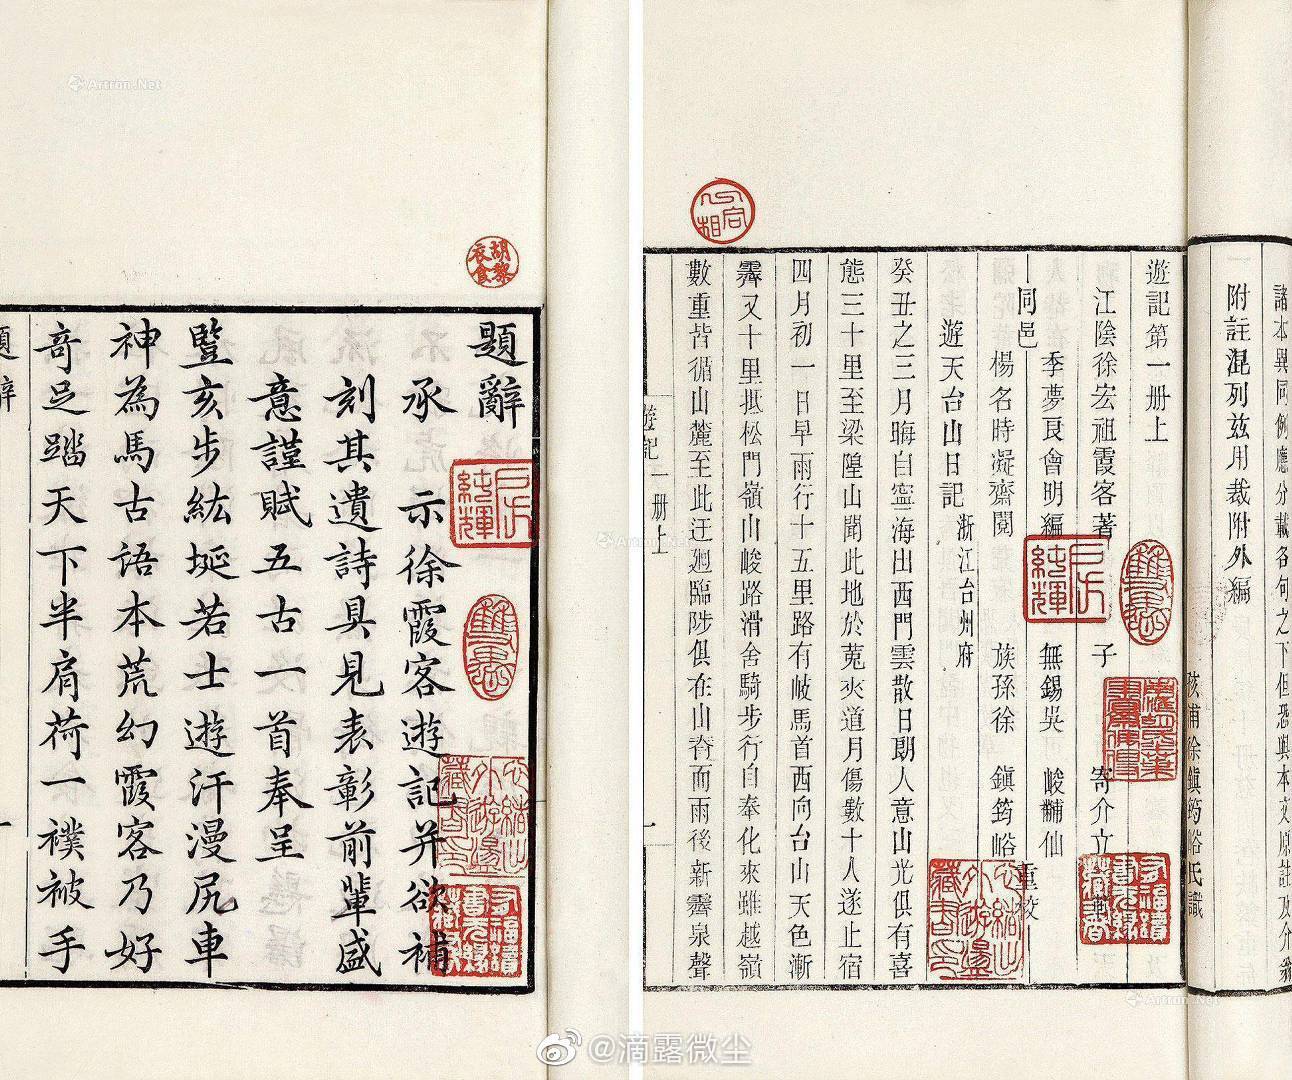 題辭
承 示徐霞客遊記并欲補
刻其遺詩具見表彰前輩盛
意謹賦五古一首奉呈
豎亥步紘埏若士遊汗漫尻車
神為馬古語本荒幻霞客乃好
奇足踏天下半肩荷一襆被手
題辭
胡黎衣食
諸本異同例應分載各句之下但恐與本文原註及介翁
附註混列茲用裁附外編
孩甫徐鎮筠峪氏識
遊記第一册上
江陰徐宏祖霞客著 子 寄介立
同邑 季夢良會明編 無錫吳 峻黼仙 重校
楊名時凝齋閱 族孫徐 鎮筠峪
遊天台山日記 浙江台州府
癸丑之三月晦自寧海出西門雲散日朗人意山光俱有喜
態三十里至梁隍山聞此地於菟夾道月傷數十人遂止宿
四月初一日早雨行十五里路有岐馬首西向台山天色漸
霽又十里抵松門嶺山峻路滑舍騎步行自奉化來雖越嶺
數重皆循山麓至此迂廻臨陟俱在山脊而雨後新霽泉聲
遊記 一册上
一
Artron.Net
@滴露微尘